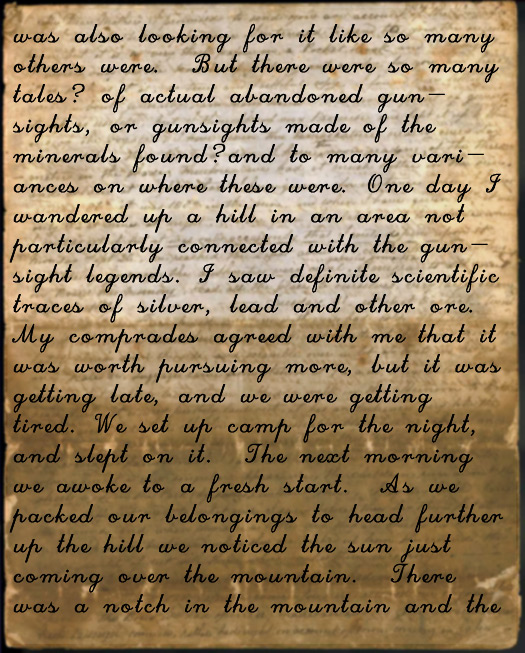 was also looking for it like so many
others were. But there were so many
tales? of actual abandoned gun-
sights, or gunsights made of the
minerals found?and to many vari-
ances on where these were. One day I
wandered up a hill in an area not
particularly connected with the gun-
sight legends. I saw definite scientific
traces of silver, lead and other ore.
My comprades agreed with me that it
was worth pursuing more, but it was
getting late, and we were getting
tired. We set up camp for the night,
and slept on it. The next morning
we awoke to a fresh start. As we
packed our belongings to head further
up the hill we noticed the sun just
coming over the mountain. There
was a notch in the mountain and the